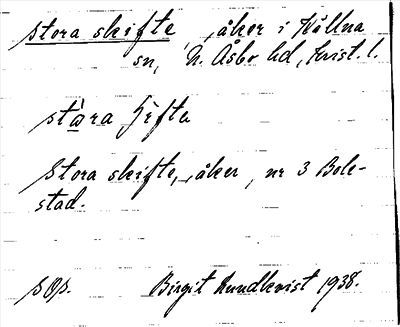 stora skifte, åker i Källna
sn, N. Åsbo hd, Krist. l.
stàra
Stora skifte, åker, nr 3 Bole-
stad.
Birgit Rundkvist 1938.